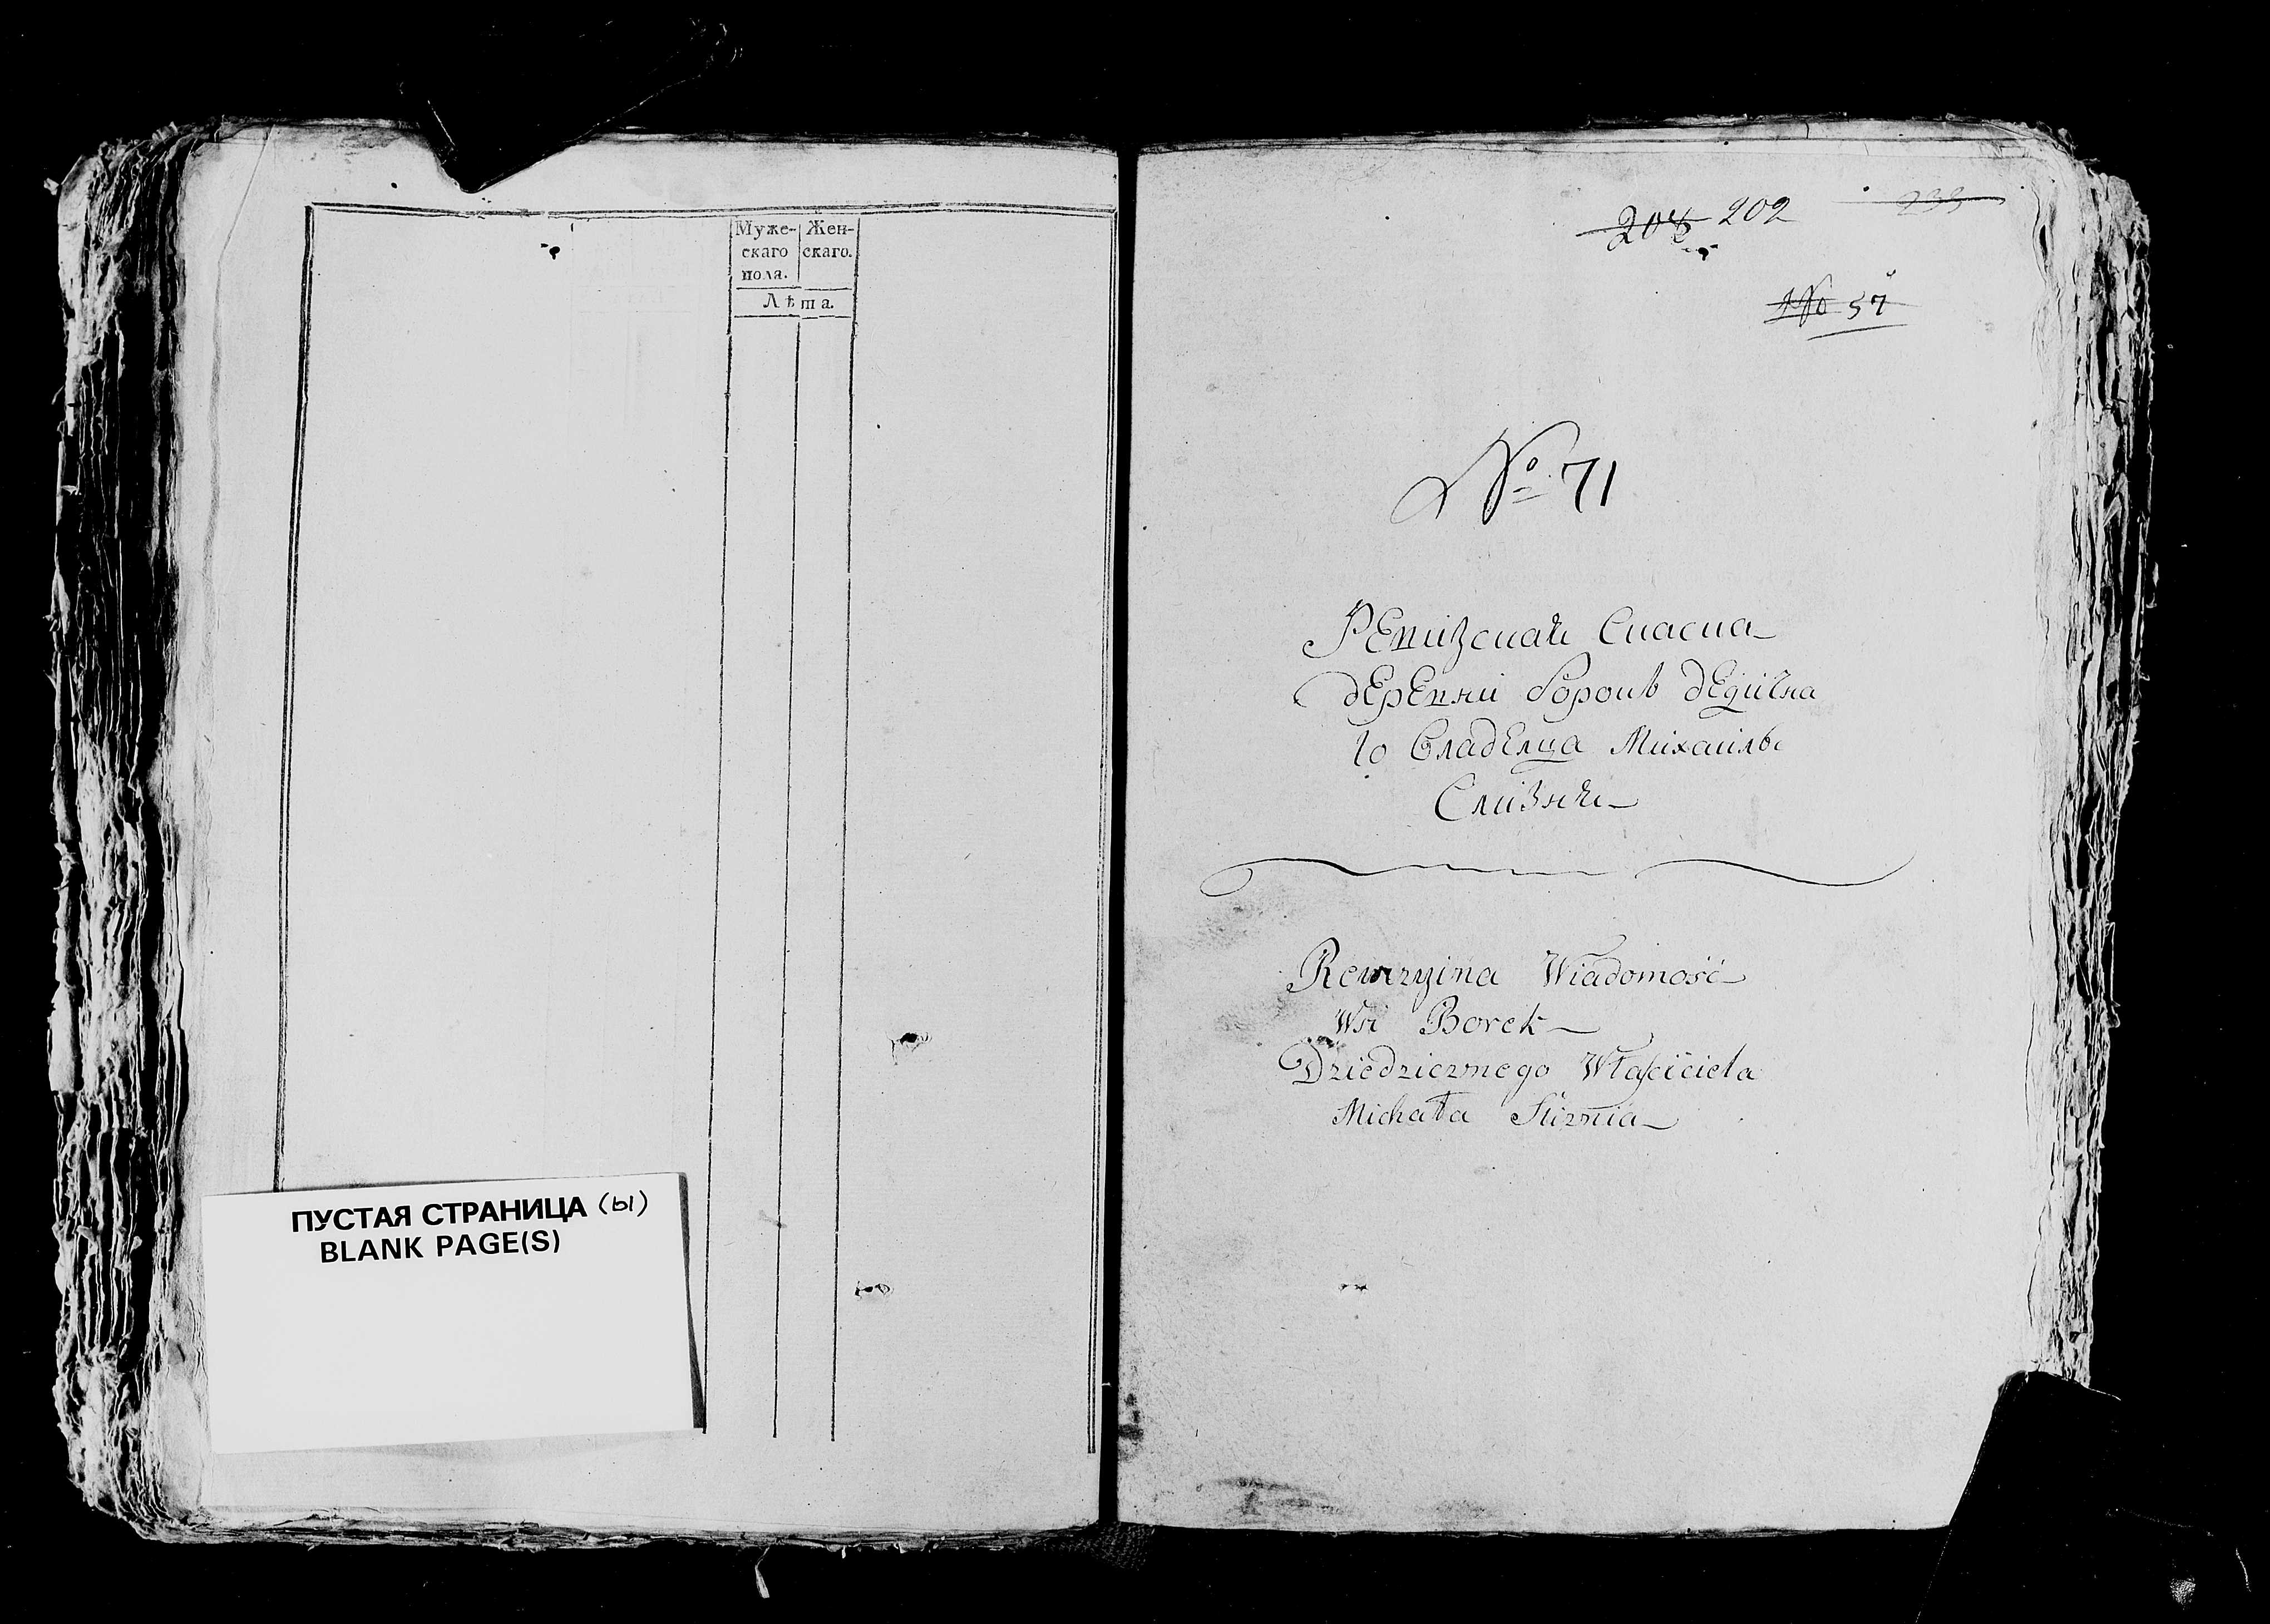 Муже-
скаго
пола.
Жен-
скаго.
Лѣта.
ПУСТАЯ СТРАНИЦА (ы)
BLANK PAGE(S)
208 202
233
No 57
№ 71
РЕвизская Сказка
дЕрЕвни Борокъ дЕдична
го ВладЕлца Михаила
Слизня
Rewizyina Wiadomość
Wsi Borek
Dziedzicznego Właściciela
Michała Sliznia